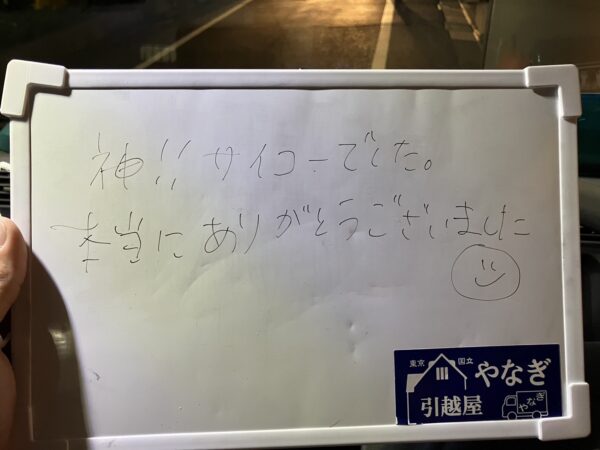 神!! サイコーでした。
本当にありがとうございました
東京 国立
やなぎ
引越屋
やなぎ